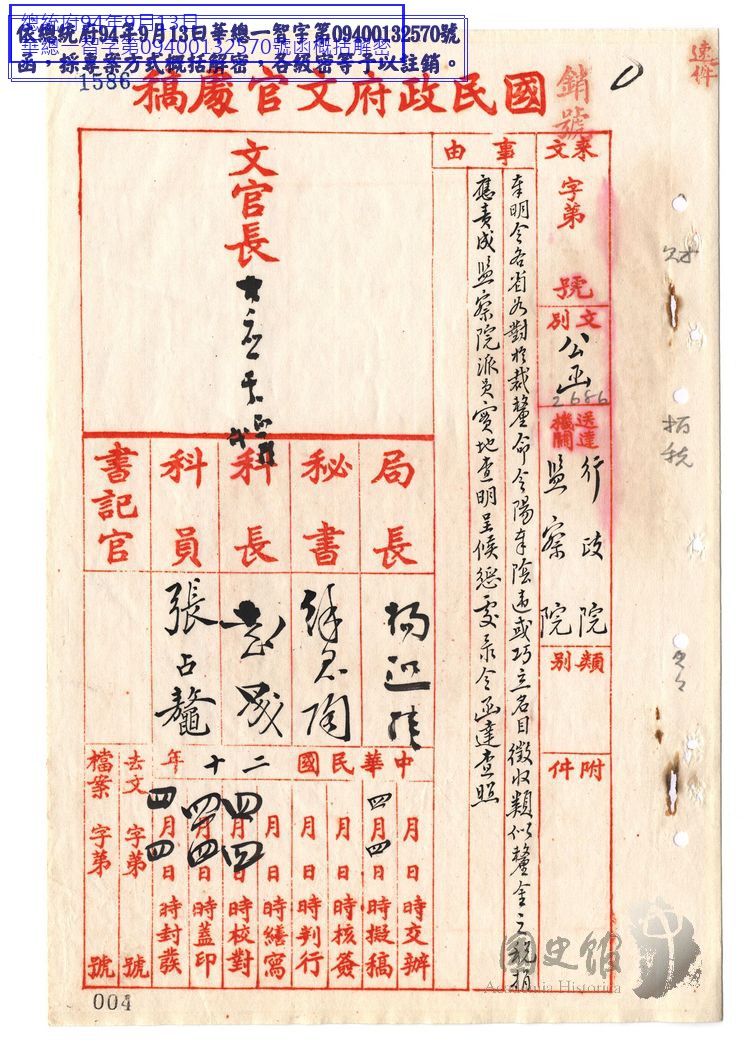 總統府94年9月13日
華總一智字第09400132570號函概括解密
依總統府94年9月13日華總一智字第09400132570號
函，採專案方式概括解密，各級密等予以註銷。
1586
速件
銷號
國民政府文官處稿
來文 字第 號
文別 公函
2686
送達機關 行政院
監察院
類別
附件
事由
奉明令各省如對於裁釐命令陽奉陰違或巧立名目徵收類似釐金之稅捐
應責成監察院派員實地查明呈候懲處录令函達查照
文官長
局長
秘書
科長
科員 張占鰲
書記官
中華民國二十年
月 日 時交辦
四月四日 時擬稿
月 日 時核簽
月 日 時判行
月 日 時繕寫
四月四日 時校對
四月四日 時蓋印
四月四日 時封發
去文 字第 號
檔案 字第 號
004
國史館
Academia Historica